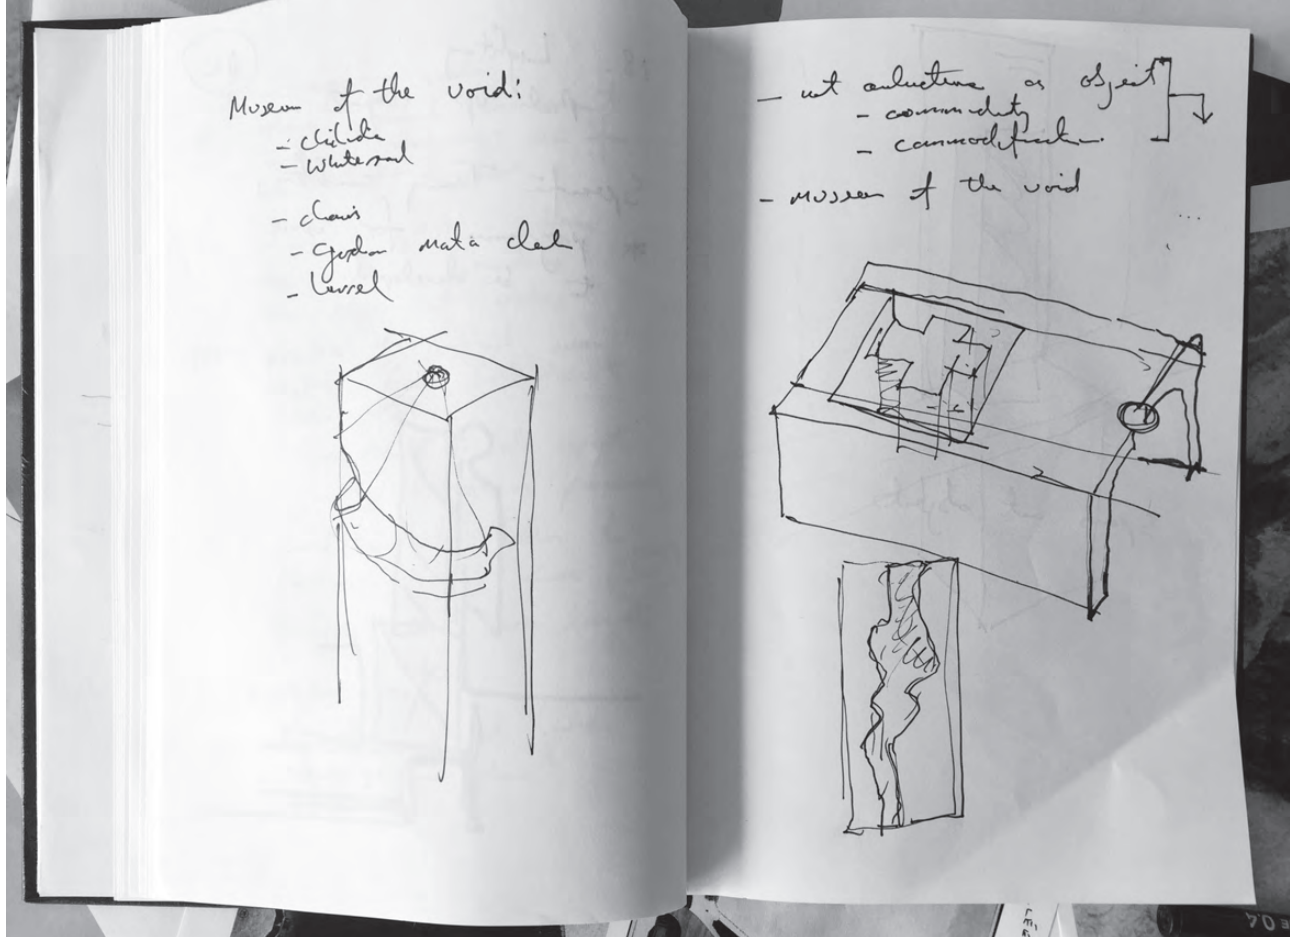 Museum of the void:
- chillida
- whiteread
- 
- Gordon mata clark
- turrel
- not architecture as object
- commodity
- commodification
- museum of the void